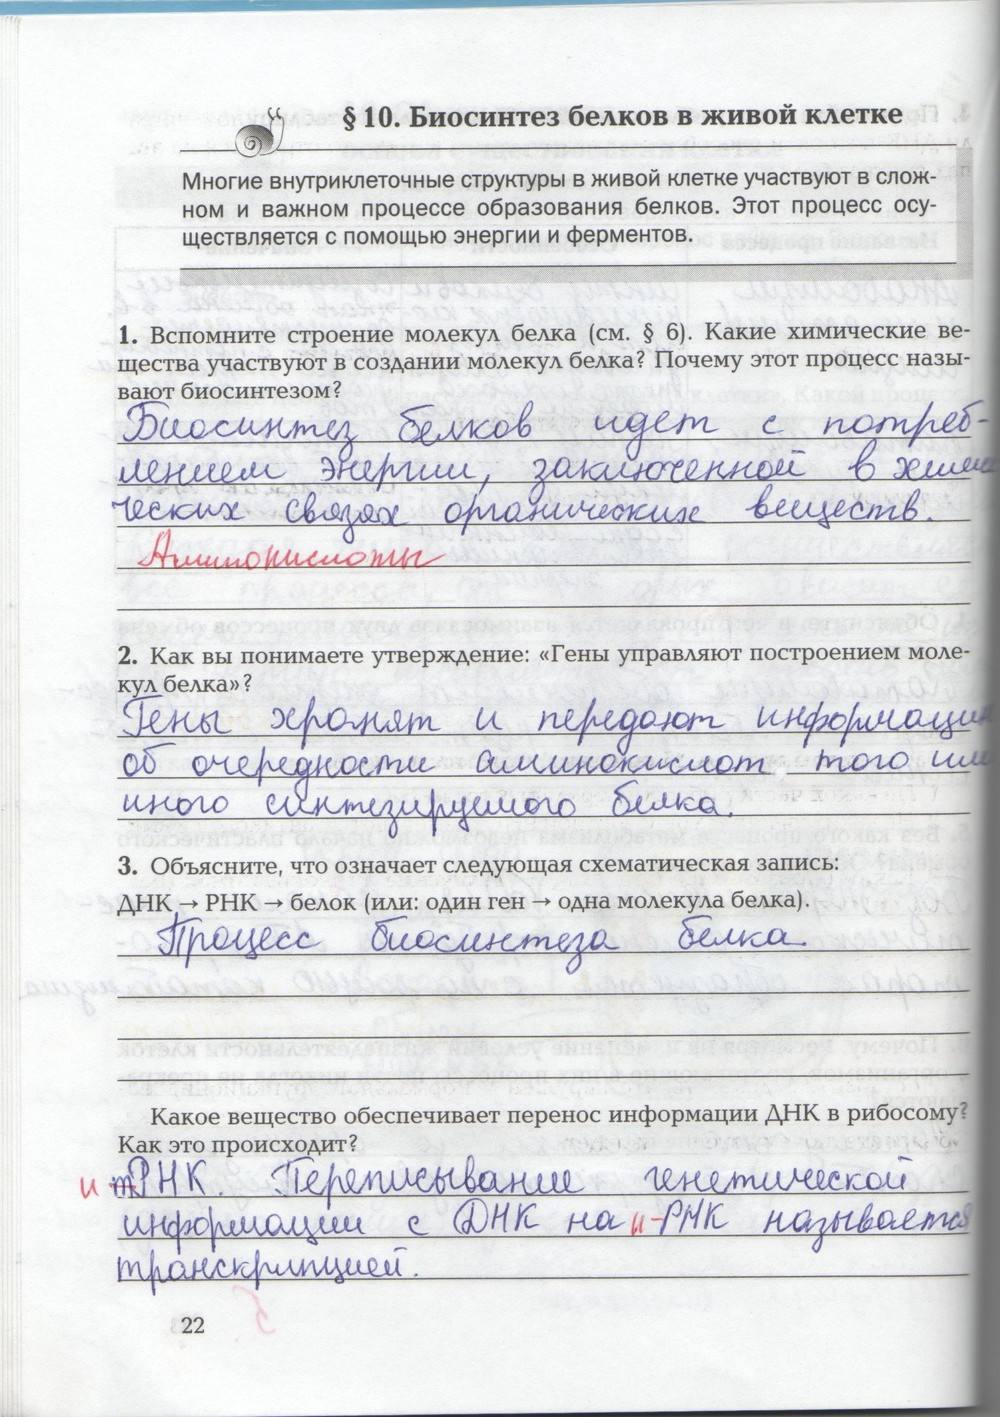 § 10. Биосинтез белков в живой клетке
Многие внутриклеточные структуры в живой клетке участвуют в слож-
ном и важном процессе образования белков. Этот процесс осу-
ществляется с помощью энергии и ферментов.
1. Вспомните строение молекул белка (см. § 6). Какие химические ве-
щества участвуют в создании молекул белка? Почему этот процесс назы-
вают биосинтезом?
Биосинтез белков идет с потреб-
лением энергии, заключенной в хими
ческих связях органических веществ.
Аминокислоты
2. Как вы понимаете утверждение: «Гены управляют построением моле-
кул белка»?
Гены хранят и передают информацию
об очередности аминокислот того или
иного синтезируемого белка.
3. Объясните, что означает следующая схематическая запись:
ДНК → РНК → белок (или: один ген → одна молекула белка).
Процесс биосинтеза белка.
Какое вещество обеспечивает перенос информации ДНК в рибосому?
Как это происходит?
и РНК. Переписывание генетической
информации с ДНК на и-РНК называется
транскрипцией.
22